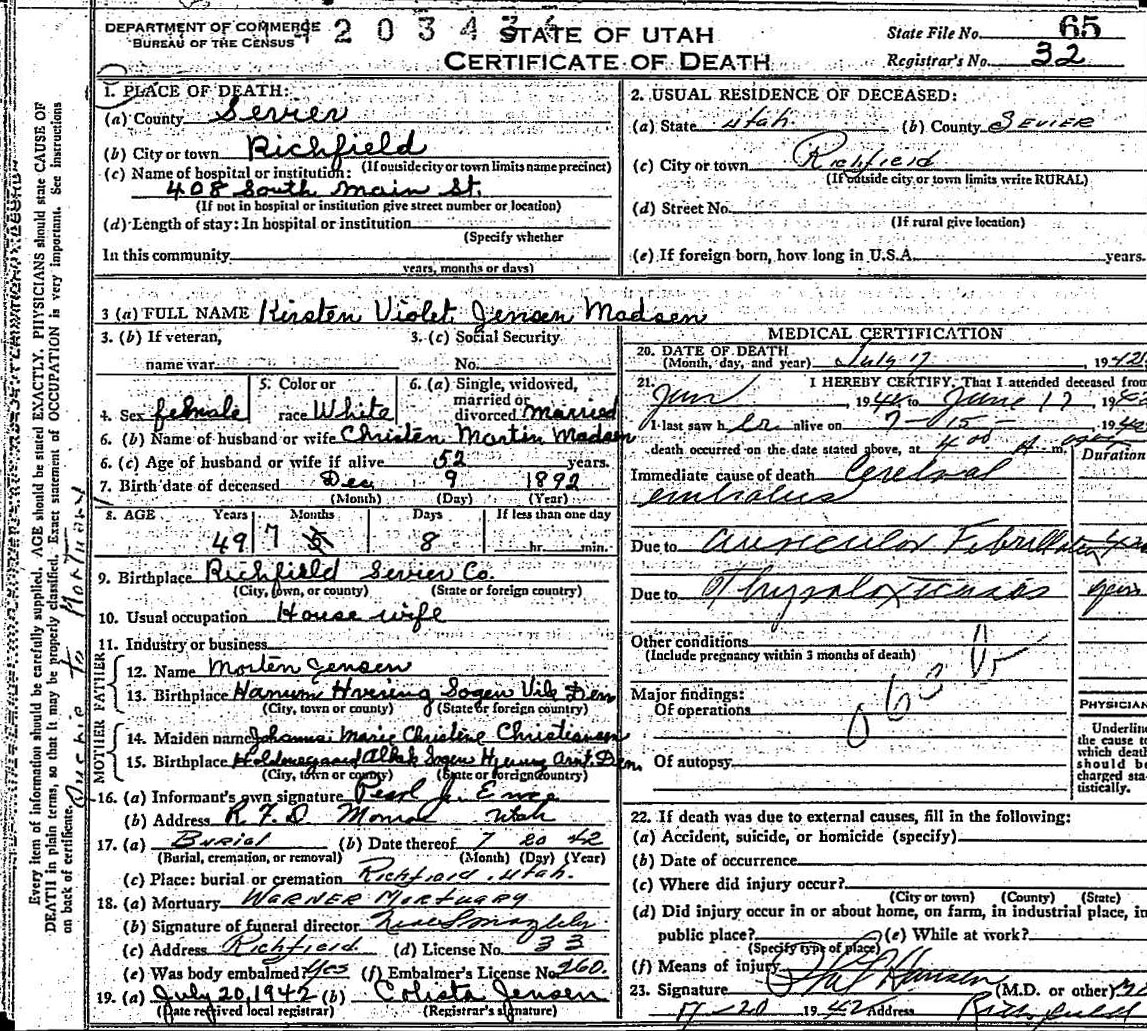 DEPARTMENT OF COMMERCE
BUREAU OF THE CENSUS
2 0 3 4 3
STATE OF UTAH
CERTIFICATE OF DEATH
State File No. 65
Registrar's No. 32
1. PLACE OF DEATH:
(a) County Sevier
(b) City or town Richfield
(If outside city or town limits name precinct)
(c) Name of hospital or institution:
408 South Main St.
(If not in hospital or institution give street number or location)
(d) Length of stay: In hospital or institution
(Specify whether
In this community
years, months or days)
2. USUAL RESIDENCE OF DECEASED:
(a) State Utah (b) County Sevier
(c) City or town Richfield
(If outside city or town limits write RURAL)
(d) Street No.
(If rural give location)
(e) If foreign born, how long in U.S.A. years.
3 (a) FULL NAME Kirsten Violet Jensen Madsen
3. (b) If veteran, 3. (c) Social Security
name war No.
4. Sex female 5. Color or race White 6. (a) Single, widowed, married or divorced married
6. (b) Name of husband or wife Christen Martin Madsen
6. (c) Age of husband or wife if alive 52 years.
7. Birth date of deceased Dec 9 1892
(Month) (Day) (Year)
8. AGE Years Months Days If less than one day
49 7 8 hr. min.
9. Birthplace Richfield Sevier Co.
(City, town, or county) (State or foreign country)
10. Usual occupation House wife
11. Industry or business
FATHER
12. Name Morten Jensen
13. Birthplace Hanum Hvering Sogen Vib Den
(City, town or county) (State or foreign country)
MOTHER
14. Maiden name Johanna Marie Christene Christiansen
15. Birthplace Sogen Den
(City, town or county) (State or foreign country)
16. (a) Informant's own signature Pearl
(b) Address R.F.D. Monroe Utah
17. (a) Burial (b) Date thereof 7 20 42
(Burial, cremation, or removal) (Month) (Day) (Year)
(c) Place: burial or cremation Richfield, Utah.
18. (a) Mortuary Warner Mortuary
(b) Signature of funeral director
(c) Address Richfield (d) License No. 33
(e) Was body embalmed? Yes (f) Embalmer's License No. 260
19. (a) July 20, 1942 (b) Colista Jensen
(Date received local registrar) (Registrar's signature)
MEDICAL CERTIFICATION
20. DATE OF DEATH July 17, 1942
(Month, day, and year)
21. I HEREBY CERTIFY, That I attended deceased from
Jun 19 to June 17 19
I last saw her alive on 7-15- 19
death occurred on the date stated above, at 4 00 A m,
Duration
Immediate cause of death Cerebral
embolus
Due to auricular Fibrillation
Due to Thyrotoxicosis years
Other conditions
(Include pregnancy within 3 months of death)
Major findings:
Of operations
Of autopsy
PHYSICIAN
Underline
the cause to
which death
should be
charged sta-
tistically.
22. If death was due to external causes, fill in the following:
(a) Accident, suicide, or homicide (specify)
(b) Date of occurrence
(c) Where did injury occur?
(City or town) (County) (State)
(d) Did injury occur in or about home, on farm, in industrial place, in
public place? (e) While at work?
(Specify type of place)
(f) Means of injury
23. Signature Hansen (M.D. or other)
20 1942 Address Richfield
Every item of information should be carefully supplied. AGE should be stated EXACTLY. PHYSICIANS should state CAUSE OF
DEATH in plain terms, so that it may be properly classified. Exact statement of OCCUPATION is very important. See instructions
on back of certificate.
to Mortuary